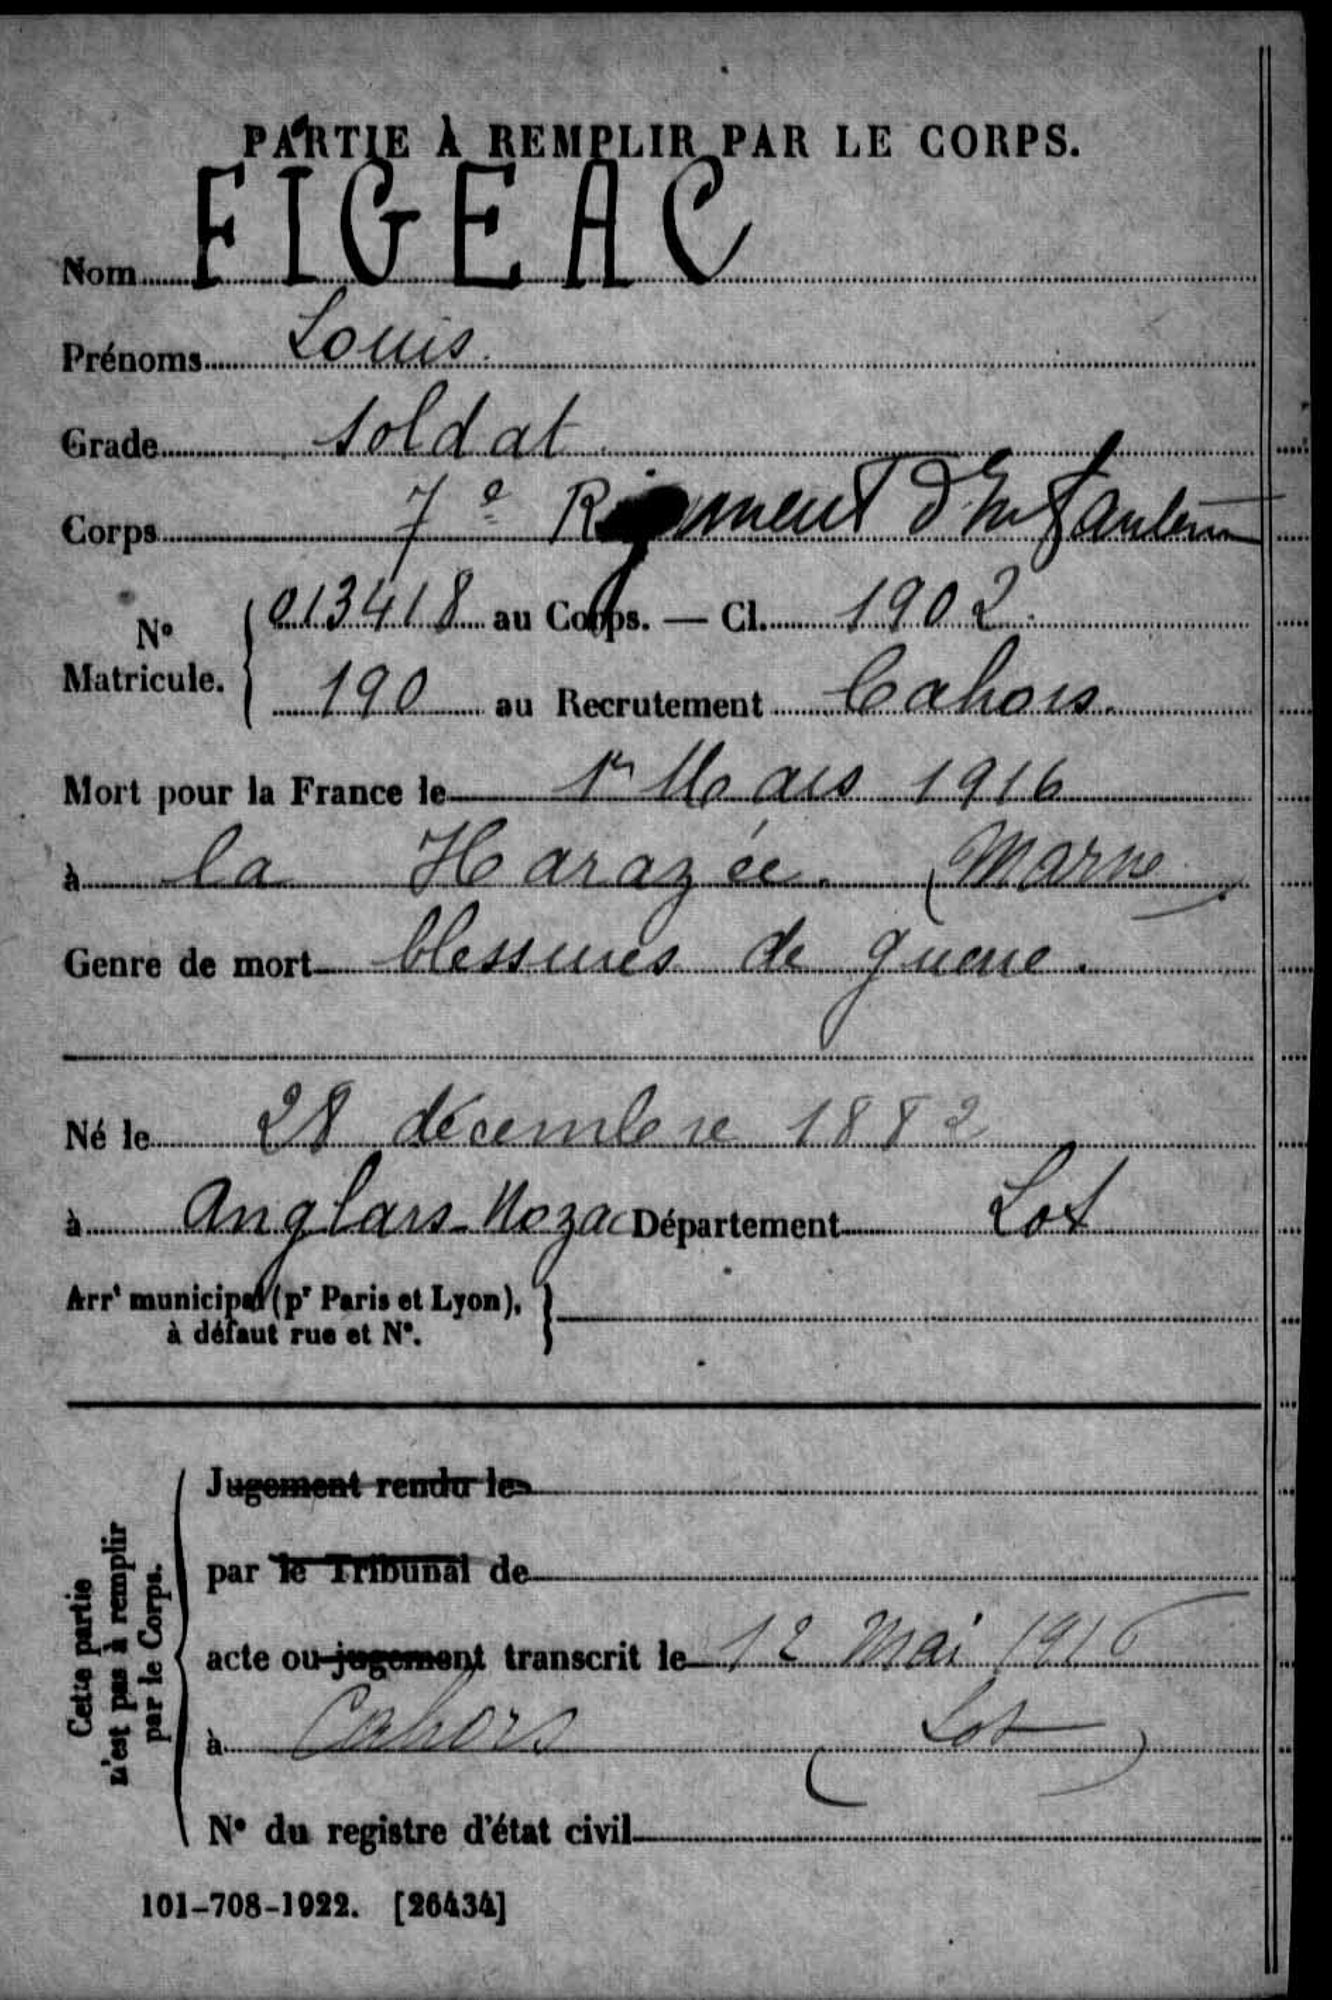 PARTIE À REMPLIR PAR LE CORPS.
Nom FIGEAC
Prénoms Louis.
Grade soldat
Corps 7e Régiment d'Infanterie
N° Matricule. 013418 au Corps. — Cl. 1902.
190 au Recrutement Cahors.
Mort pour la France le 1er Mars 1916
à la Harazée. (Marne)
Genre de mort blessures de guerre.
Né le 28 décembre 1882
à Anglars-Nozac Département Lot
Arrt municipal (pr Paris et Lyon),
à défaut rue et N°.
Cette partie
n'est pas à remplir
par le Corps.
Jugement rendu le
par le Tribunal de
acte ou jugement transcrit le 12 Mai 1916
à Cahors (Lot)
N° du registre d'état civil
101-708-1922. [26434]